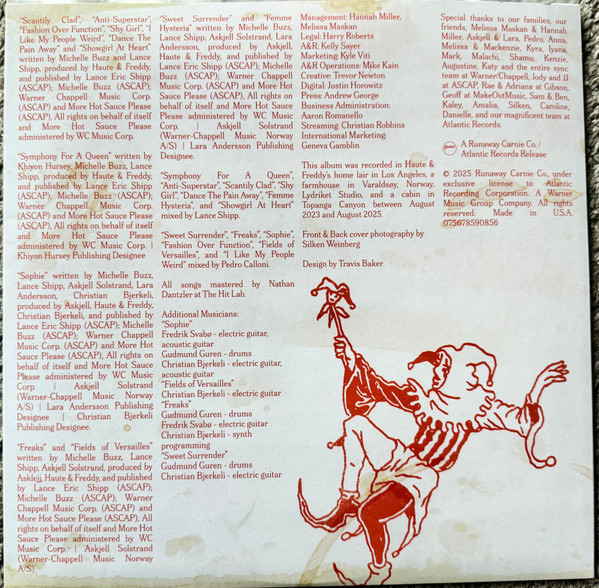 "Scantily Clad", "Anti-Superstar",
"Fashion Over Function", "Shy Girl", "I
Like My People Weird", "Dance The
Pain Away" and "Showgirl At Heart"
written by Michelle Buzz and Lance
Shipp, produced by Haute & Freddy,
and published by Lance Eric Shipp
(ASCAP); Michelle Buzz (ASCAP);
Warner Chappell Music Corp.
(ASCAP) and More Hot Sauce Please
(ASCAP), All rights on behalf of itself
and More Hot Sauce Please
administered by WC Music Corp.
"Symphony For A Queen" written by
Khiyon Hursey, Michelle Buzz, Lance
Shipp, produced by Haute & Freddy,
and published by Lance Eric Shipp
(ASCAP), Michelle Buzz (ASCAP);
Warner Chappell Music Corp.
(ASCAP) and More Hot Sauce Please
(ASCAP), All rights on behalf of itself
and More Hot Sauce Please
administered by WC Music Corp. |
Khiyon Hursey Publishing Designee
"Sophie" written by Michelle Buzz,
Lance Shipp, Askjell Solstrand, Lara
Andersson, Christian Bjerkeli,
produced by Askjell, Haute & Freddy,
Christian Bjerkeli, and published by
Lance Eric Shipp (ASCAP); Michelle
Buzz (ASCAP); Warner Chappell
Music Corp. (ASCAP) and More Hot
Sauce Please (ASCAP), All rights on
behalf of itself and More Hot Sauce
Please administered by WC Music
Corp. | Askjell Solstrand
(Warner-Chappell Music Norway
A/S) | Lara Andersson Publishing
Designee | Christian Bjerkeli
Publishing Designee.
"Freaks" and "Fields of Versailles"
written by Michelle Buzz, Lance
Shipp, Askjell Solstrand, produced by
Asklejj, Haute & Freddy, and published
by Lance Eric Shipp (ASCAP);
Michelle Buzz (ASCAP); Warner
Chappell Music Corp. (ASCAP) and
More Hot Sauce Please (ASCAP), All
rights on behalf of itself and More Hot
Sauce Please administered by WC
Music Corp. | Askjell Solstrand
(Warner-Chappell Music Norway
A/S)
"Sweet Surrender" and "Femme
Hysteria" written by Michelle Buzz,
Lance Shipp, Askjell Solstrand, Lara
Andersson, produced by Askjell,
Haute & Freddy, and published by
Lance Eric Shipp (ASCAP); Michelle
Buzz (ASCAP); Warner Chappell
Music Corp. (ASCAP) and More Hot
Sauce Please (ASCAP), All rights on
behalf of itself and More Hot Sauce
Please administered by WC Music
Corp. | Askjell Solstrand
(Warner-Chappell Music Norway
A/S) | Lara Andersson Publishing
Designee.
"Symphony For A Queen",
"Anti-Superstar", "Scantily Clad", "Shy
Girl", "Dance The Pain Away", "Femme
Hysteria", and "Showgirl At Heart"
mixed by Lance Shipp.
"Sweet Surrender", "Freaks", "Sophie",
"Fashion Over Function", "Fields of
Versailles", and "I Like My People
Weird" mixed by Pedro Calloni.
All songs mastered by Nathan
Dantzler at The Hit Lab.
Additional Musicians:
"Sophie"
Fredrik Svabø - electric guitar,
acoustic guitar
Gudmund Guren - drums
Christian Bjerkeli - electric guitar,
acoustic guitar
"Fields of Versailles"
Christian Bjerkeli - electric guitar
"Freaks"
Gudmund Guren - drums
Fredrik Svabø - electric guitar
Christian Bjerkeli - synth
programming
"Sweet Surrender"
Gudmund Guren - drums
Christian Bjerkeli - electric guitar
Management: Hannah Miller,
Melissa Maskan
Legal: Harry Roberts
A&R: Kelly Sayer
Marketing: Kyle Viti
A&R Operations: Mike Kain
Creative: Trevor Newton
Digital: Justin Horowitz
Press: Andrew George
Business Administration:
Aaron Romanello
Streaming: Christian Robbins
International Marketing:
Geneva Gamblin
This album was recorded in Haute &
Freddy's home lair in Los Angeles, a
farmhouse in Varaldsøy, Norway,
Lydriket Studio, and a cabin in
Topanga Canyon between August
2023 and August 2025.
Front & Back cover photography by
Silken Weinberg
Design by Travis Baker
Special thanks to our families, our
friends, Melissa Maskan & Hannah
Miller, Askjell & Lara, Pedro, Anna,
Melissa & Mackenzie, Kyra, Iyana,
Mark, Malachi, Shamu, Kenzie,
Augustine, Katy and the entire sync
team at Warner/Chappell, Jody and JJ
at ASCAP, Rae & Adriana at Gibson,
Geoff at MakeOutMusic, Sam & Ben,
Kaley, Amalia, Silken, Caroline,
Danielle, and our magnificent team at
Atlantic Records.
A Runaway Carnie Co. /
Atlantic Records Release
© 2025 Runaway Carnie Co., under
exclusive license to Atlantic
Recording Corporation. A Warner
Music Group Company. All rights
reserved. Made in U.S.A.
075678590856